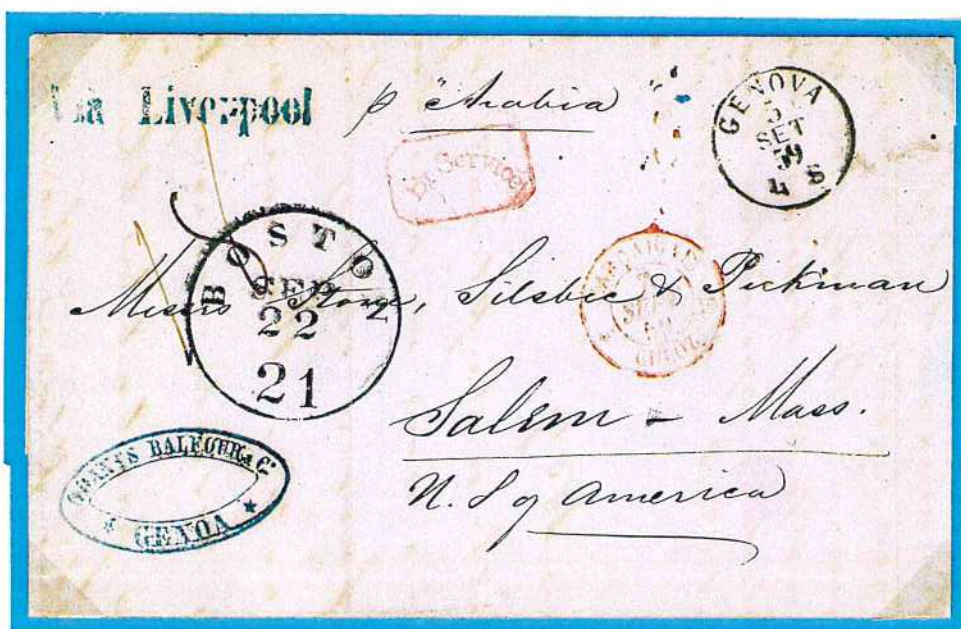 Via Liverpool
p "Arabia
GENOVA
SET
59
Br. Service
BOSTON
SEP
22
21
Messrs Stone, Silsbee & Pickman
CULOZ
Salem - Mass.
U. S of America
BALFOUR & Co
GENOA